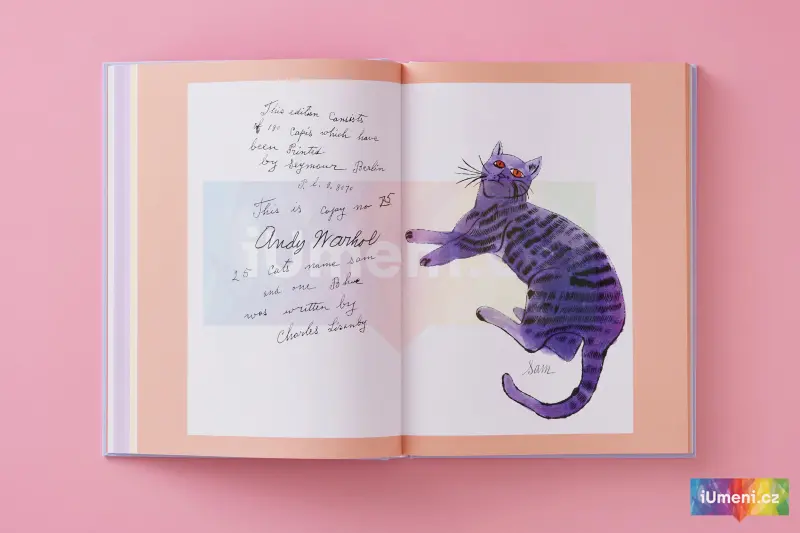 This edition Consists
of 190 Copis which have
been Printed
by Seymour Berlin
This is copy no 75
Andy Warhol
25 Cats name Sam
and one Blue
was written by
Charles Lisanby
Sam
iUmeni.cz
iUmeni.cz